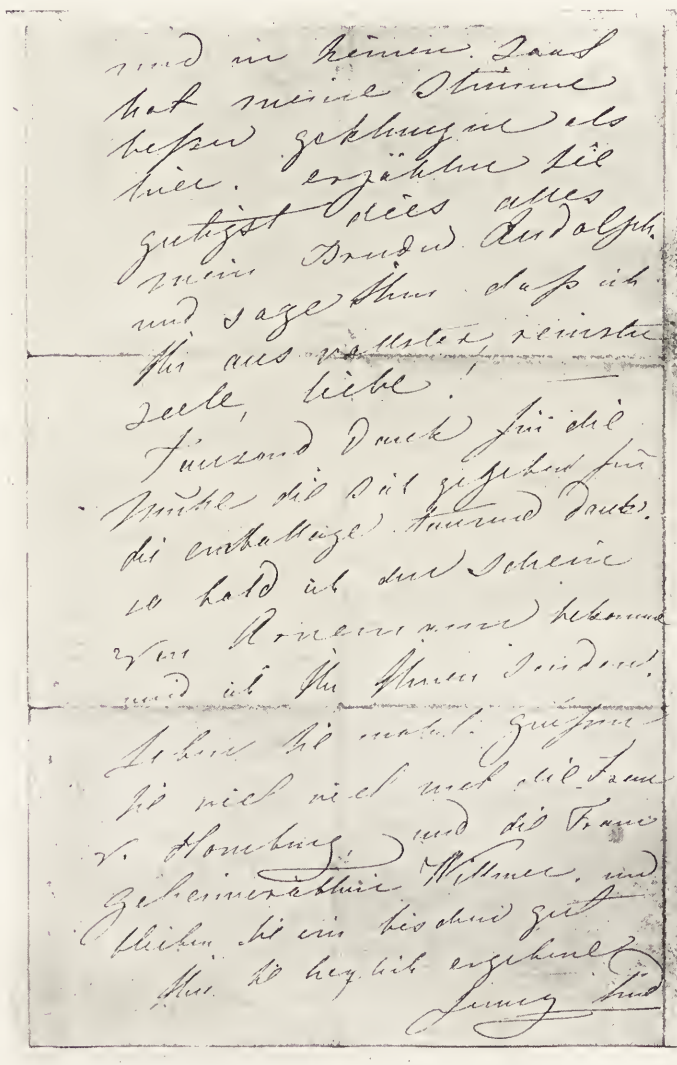 und in keinen Saal
hat meine Stimme
beßer geklungen als
hier. erzählen Sie
gutigst dies alles
mein Bruder Rudolph.
und sage Ihm daß ich
Ihn aus vollster, reinster
Seele, liebe! —
Tausend Dank für die
Mühe die Sie gegeben für
die emballage. tausend Dank.
so bald ich den Schein
von bekomme
wird ich Ihn Ihnen senden.
Leben Sie wohl. grüßen
Sie viel viel mal die Frau
v. Homburg, und die Frau
geheimeräthin Willmer. und
bleiben Sie ein bischen gut
Ihre Sie herzlich ergebene
Jenny Lind